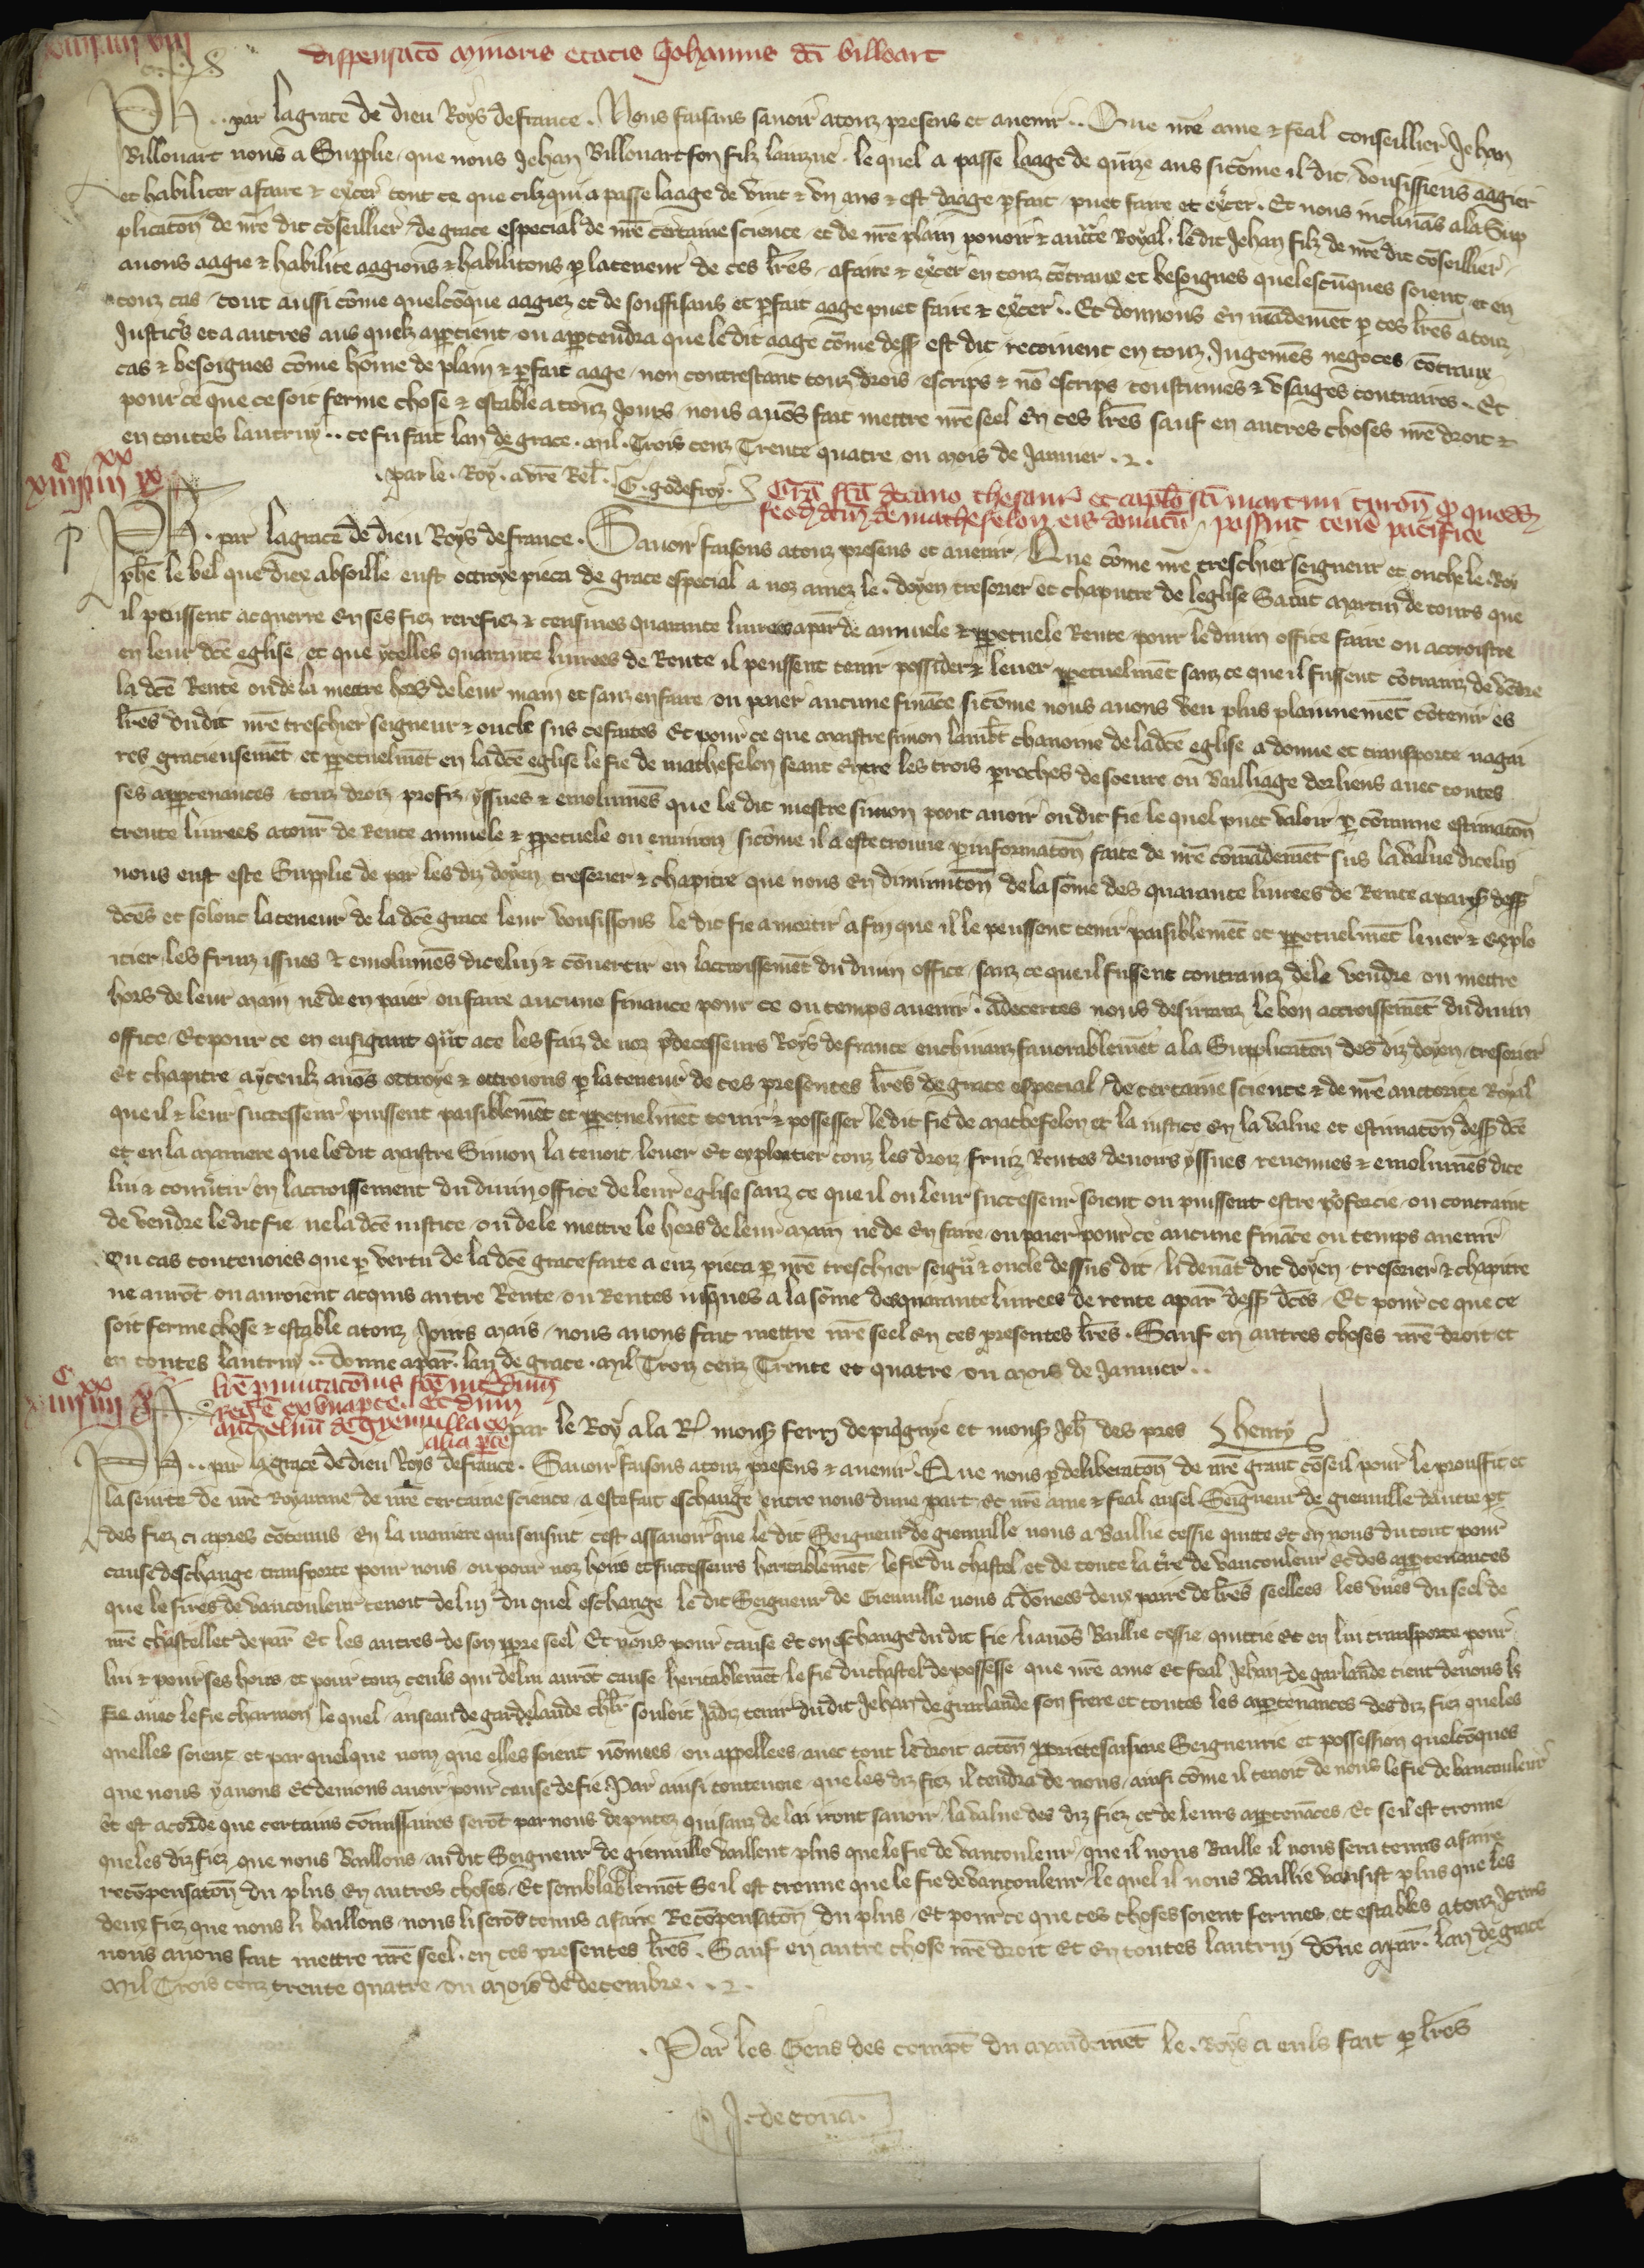 dispensato minoris etatis Johannis dci billoart
Ph . . par la grace de dieu Roys de france . Nous faisans savoir a touz presens et avenir . . Que nre ame & feal conseillier Jehan
Billouart nous a Supplie que nous Jehan Billouart son filz lainzne . le quel a passe laage de quize ans si come il dit vousissiens aagier
et habiliter a faire & excer tout ce que cilz qui a passe laage de vint & un ans & est daage pfait puet faire et excer . Et nous inclinas a la Sup
plicaton de nre dit coseillier de grace especial de nre certaine science et de nre plain pouoir & aucte Royal . le dit Jehan filz de nre dit coseillier
avons aagie & habilite aagions & habilitons p la teneur de ces lres a faire & excer en touz cotraux et besoignes quelescuques soient et en
touz cas tout aussi come quelcoque aagiez et de souffisans et pfait aage puet faire & excer . . Et donnons en mademet p ces lres a touz
Justicrs et a autres aus quelz aptient ou aptendra que le dit aage come dess est dit recoivent en touz Jugemes negoces cotraux
cas & besoignes come home de plain & pfait aage non contrestant touz drois escrips & no escrips coustumes & usages contraires . . Et
pour ce que ce soit ferme chose & estable a touz Jours nous avos fait mettre nre seel en ces lres sauf en autres choses nre droit &
en toutes lautruy . . ce fu fait lan de grace . mil . Trois cenz Trente quatre ou mois de Janvier . 2 .
. par le . Roy . a vre Rel . G . godefroy .
Gra fca decano thesaur et capло sci martini turon q quodda
feod dcm de mathefelon eis donatu possint tene pacifice
Ph . par la grace de dieu Roys de france . Savoir faisons a touz presens et avenir Que come nre treschier seigneur et oncle le . Roy
phe le bel que diex absoille eust ottroye pieca de grace especial a noz amez le . doyen tresorier et chapitre de leglise Saint martin de tours que
il peussent acquerre en ses fiez rerefiez & censives quarante livrees a par de annuele & ppetuele Rente pour le divin office faire ou accroistre
en leur dce eglise et que ycelles quarante livrees de Rente il peussent tenir possider & lever ppetuelmet sanz ce que il fussent cotrainz de vedre
la dce Rente ou de la mettre hors de leur main et sanz en faire ou paier aucune finace si come nous avons veu plus plainnemet cotenir es
lres du dit nre treschier seigneur & oncle sus ce faites Et pour ce que maistre simon lambt chanoine de la dce eglise a donne et transporte nagai
res gracieusemet et ppetuelmet en la dce eglise le fie de mathefelon seant entre les trois proches de soeure ou bailliage dorliens avec toutes
ses apptenances touz droiz profiz yssues & emolumes que le dit mestre simon povit avoir ou dit fie le quel puet valoir p comune estimaton
trente livrees a tour de Rente annuele & ppetuele ou environ si come il a este trouve p informaton faite de nre comademet sus la value dicelui
nous eust este Supplie de par les diz doyen tresorier & chapitre que nous en diminuton de la some des quarante livrees de Rente a paris dess
dces et solonc la teneur de la dce grace leur vousissons le dit fie amortir a fin que il le peussent tenir paisiblemet et ppetuelmet lever & explo
itier les fruiz issues & emolumes dicelui & covertir en laccroissemet du divin office sanz ce que il fussent contrainz de le vendre ou mettre
hors de leur main ne de en paier ou faire aucune finance pour ce ou temps avenir . adecertes nous desirranz le bon accroissemet du divin
office Et pour ce en ensigant qut a ce les faiz de noz pdecesseurs Roys de france enclinanz favorablemet a la Supplicaton des diz doyen tresorier
Et chapitre a yceulz avos ottroye & ottroions p la teneur de ces presentes lres de grace especial de certaine science & de nre auctorite Royal
que il & leur successeur puissent paisiblemet et ppetuelmet tenir & possesser le dit fie de mathefelon et la iustice en la value et estimaton dess dce
et en la maniere que le dit maistre Simon la tenoit lever Et exploitier touz les droiz fruiz Rentes devoirs yssues revenues & emolumes dice
lui & convtir en laccroissement du divin office de leur eglise sanz ce que il ou leur successeur soient ou puissent estre pforcie ou contraint
de vendre le dit fie ne la dce iustice ou de le mettre le hors de leur main ne de en faire ou paier pour ce aucune finace ou temps avenir
Ou cas toutevoies que p vertu de la dce grace faite a euz pieca p nre treschier seigu & oncle dessus dit li devat dit doyen tresorier & chapitre
ne aurot ou auroient acquis autre Rente ou Rentes iusques a la some des quarante livrees de rente a par dess dces . Et pour ce que ce
soit ferme chose & estable a touz Jours mais nous avons fait mettre nre seel en ces presentes lres . Sauf en autres choses nre droit et
en toutes lautruy . . donne a par . lan de grace . mil Troiz cenz Trente et quatre ou mois de Janvier . .
lre pmutaconis fce int dnm
rege ex una pte . Et dnm
ancelinu de gienvilla ex
alia pte
par le Roy a la Rl mons ferri de piqgnye et mons Jeh des pres Henry
Ph . . par la grace de dieu Roys de france . Savoir faisons a touz presens & avenir . Que nous p deliberaton de nre grant coseil pour le prouffit et
la seurte de nre Royaume de nre certaine science a este fait eschange entre nous dune part Et nre ame & feal ansel Seigneur de gienville dautre pt
des fiez ci apres cotenus en la maniere qui sensuit cest assavoir que le dit Seigneur de gienville nous a Baillie cessie quitte et en nous du tout pour
cause deschange transporte pour nous ou pour noz hoirs et successeurs heritablemet le fie du chastel et de toute la tre de vaucouleur Et des apptenances
que le sires de vaucouleur tenoit de lui du quel eschange le dit Seigneur de Gienville nous a donees deux paire de lres seellees les unes du seel de
nre chastellet de par Et les autres de son ppre seel Et nous pour cause Et en eschange du dit fie li avos Baillie cessie quittie et en lui transporte pour
lui & pour ses hoirs et pour touz ceuls qui de lui aurot cause heritablemet le fie du chastel de possesse que nre ame et feal Jehan de garlande tient de nous li
Et avec le fie charmon le quel anseau de gardelaude chlr souloit Jadiz tenir du dit Jehan de garlande son frere et toutes les apptenances des diz fiez queles
quelles soient et par quelque nom que elles soient nomees ou appellees avec tout le droit acton pprietesaisine Seigneurie et possession quelcoques
que nous y avons Et devions avoir pour cause de fie Par ainsi toutevoie que les diz fiez il tendra de nous ainsi come il tenoit de nous le fie de vaucouleur
Et est acorde que certains comissaires serot par nous deputez qui sanz delai iront savoir la value des diz fiez et de leurs apptenaces Et se il est trouve
que les diz fiez que nous Baillons au dit Seigneur de gienville vaillent plus que le fie de vaucouleur que il nous Baille il nous sera tenus a faire
recopensaton du plus en autres choses . Et semblablemet Se il est trouve que le fie de vaucouleur le quel il nous Baillie vausist plus que les
deux fiez que nous li baillons nous li serot tenus a faire Recopensaton du plus . Et pour ce que ces choses soient fermes et estables a touz Jours
nous avons fait mettre nre seel . en ces presentes lres . Sauf en autre chose nre droit Et en toutes lautrui done a par . lan de grace
Mil Trois cenz trente quatre ou mois de decembre . . 2 .
. Par les Gens des compt du mandemet le . Roys a euls fait p lres
J . de cona .